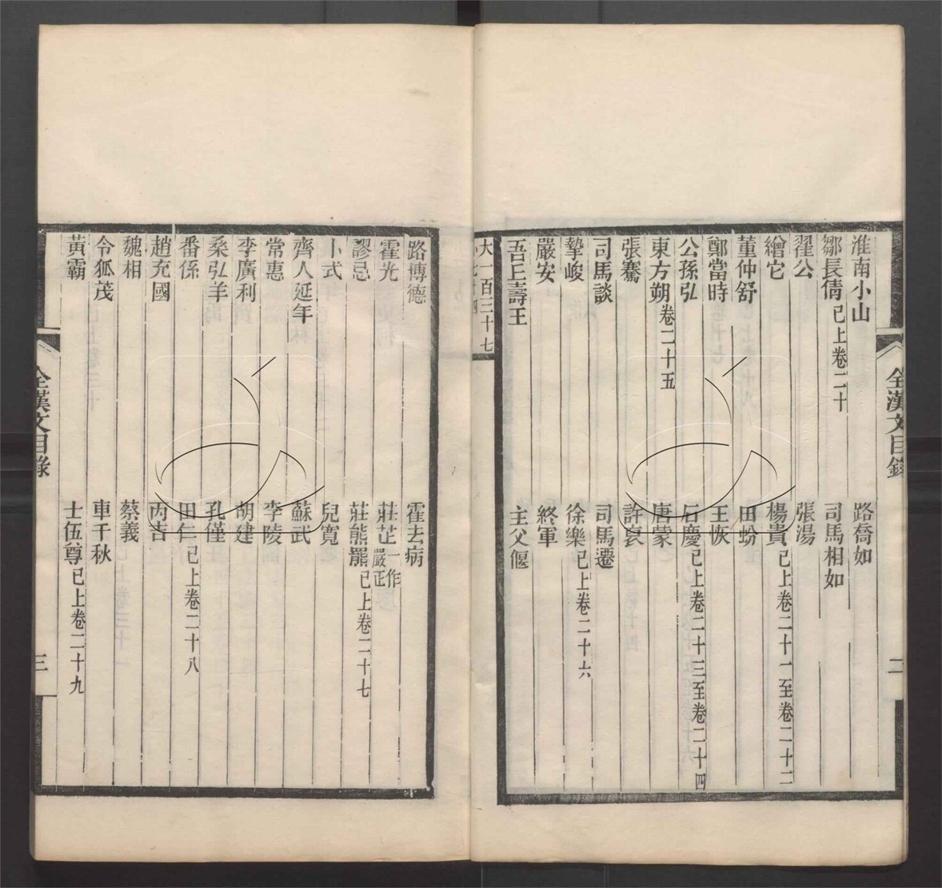 全漢文目錄
二
淮南小山
路喬如
鄒長倩已上卷二十
司馬相如
翟公
張湯
繒它
楊貴已上卷二十一至卷二十二
董仲舒
田蚡
鄭當時
王恢
公孫弘
石慶已上卷二十三至卷二十四
東方朔卷二十五
唐蒙
張騫
許襃
司馬談
司馬遷
摯峻
徐樂已上卷二十六
嚴安
終軍
吾丘壽王
主父偃
大一百三十七
路博德
霍去病
霍光
莊芷一作嚴正
謬忌
莊熊羆已上卷二十七
卜式
兒寬
齊人延年
蘇武
常惠
李陵
李廣利
胡建
桑弘羊
孔僅
番係
田仁已上卷二十八
趙充國
丙吉
魏相
蔡義
令狐茂
車千秋
黃霸
士伍尊已上卷二十九
全漢文目錄
三